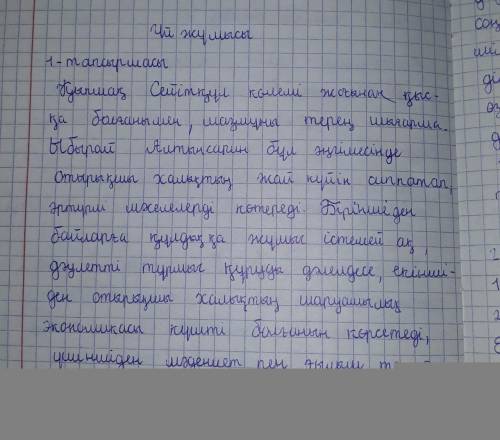 Үй жұмысы
1-тапсырмасы
Қыпшақ Сейітқұл көлемі жағынан қыс-
қа болғанымен, мазмұны терең шығарма.
Ыбырай Алтынсарин бұл әңгімесінде
отырықшы халықтың жай күйін сиппатап,
әртүрлі мәселелерді көтереді. Біріншіден
байларға құлдыққа жұмыс істемей ақ,
дәулетті тұрмыс құруды дәлелдесе, екінші-
ден отырықшы халықтың шаруашылық
экономикасы күшті болғанын көрсетеді,
үшіншіден мәдениет пен ғылым